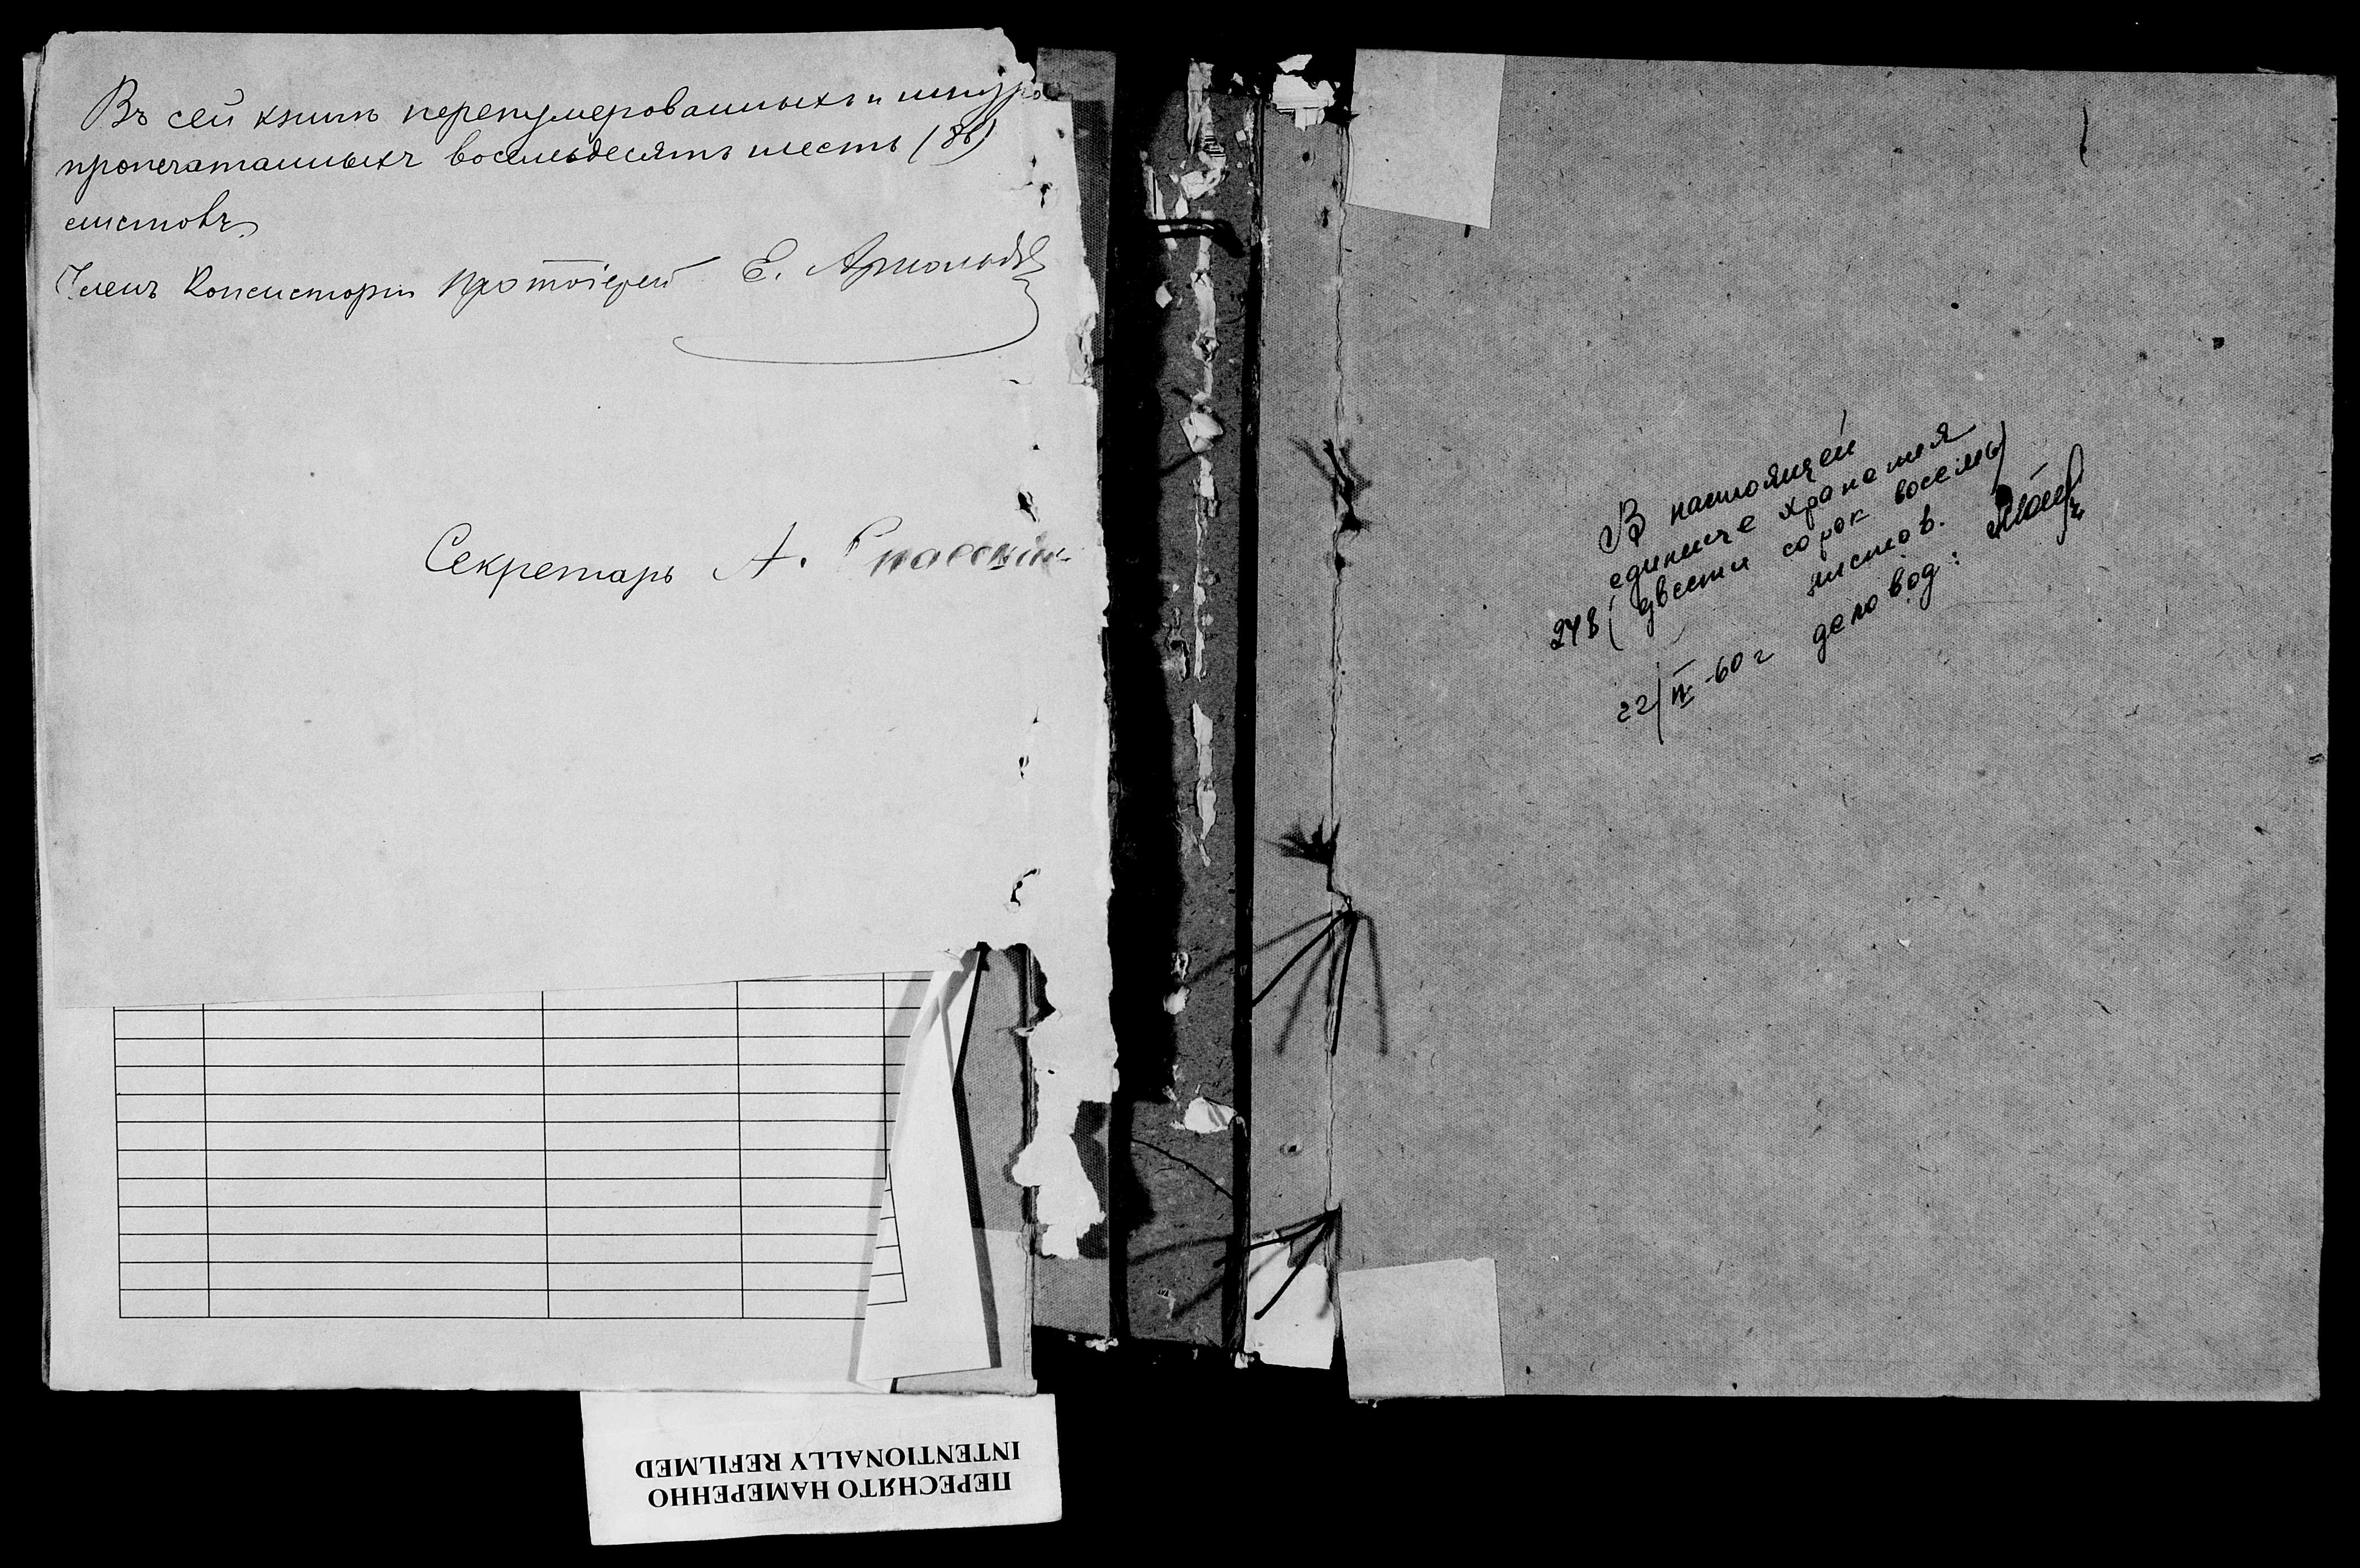 Въ сей книгѣ перенумерованныхъ и шнуро
пропечатанныхъ восемьдесятъ шесть (86)
листовъ
Членъ Консисторіи Протоіерей Е. Арнольдовъ
Секретарь А. Спасскій
В настоящей
единице хранения
248 (двести сорок восемь)
листов.
22/IV-60 г деловод:
ПЕРЕСНЯТО НАМЕРЕННО
INTENTIONALLY REFILMED